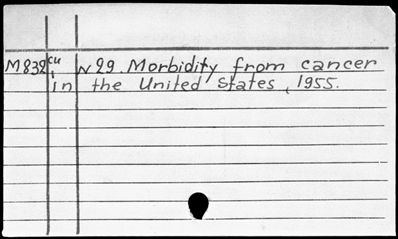 M832 cu N29. Morbidity from cancer
in the United States, 1955.